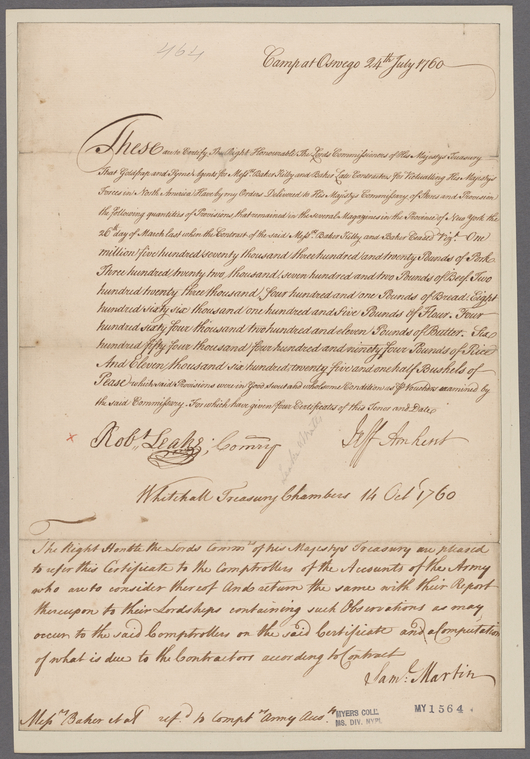 464
Camp at Oswego 24th July 1760
These are to Certify The Right Honourable The Lords Commissioners of His Majestys Treasury
That Goldfrap and Agents for Messrs. Baker Kilby and Baker Late Contractors for Victualling His Majestys
Forces in North America Have by my Orders Delivered to His Majestys Commissary of Stores and Provisions
the following quantities of Provisions that remained in the Several Magazines in the Province of New York the
26th day of March last when the Contract of the said Messrs. Baker Kilby and Baker Ceased Vizt. One
million five hundred seventy thousand three hundred and twenty Pounds of Pork
Three hundred twenty two thousand seven hundred and two Pounds of Beef Two
hundred twenty three thousand four hundred and one Pounds of Bread Eight
hundred sixty six thousand one hundred and five Pounds of Flour Four
hundred sixty four thousand two hundred and eleven Pounds of Butter Six
hundred fifty four thousand four hundred and ninety four Pounds of Rice
And Eleven thousand six hundred twenty five and one half Bushels of
Pease which said Provisions were in Good Sweet and wholsome Condition as Pr. Vouchers examined by
the said Commissary. For which have given four Certificates of this Tenor and Date
Robt. Leake, Commry
Jeff Amherst
Whitehall Treasury Chambers 14 Octr. 1760
The Right Honble the Lords Commrs of his Majestys Treasury are pleased
to refer this Certificate to the Comptrollers of the Accounts of the Army
who are to consider thereof And return the same with their Report
thereupon to their Lordships containing such Observations as may
occur to the said Comptrollers on the said Certificate and a Computation
of what is due to the Contractors according to Contract
Saml. Martin
Messrs Baker et al refd. to Comptrs Army Accots
MYERS COLL.
MS. DIV. NYPL
MY 1564